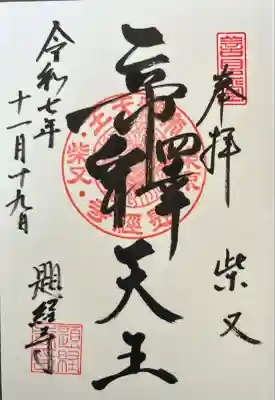 奉拝 柴又
帝釋天王
令和七年
十一月十九日
題経寺